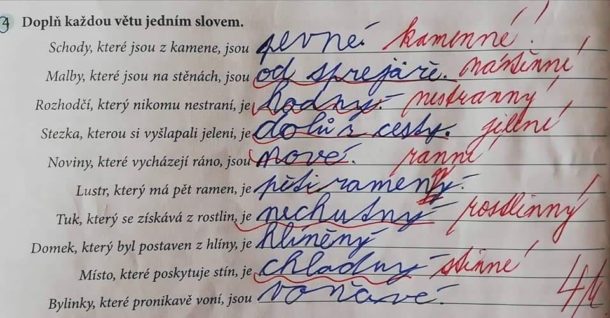 4 Doplň každou větu jedním slovem.
Schody, které jsou z kamene, jsou pevné. kamenné!
Malby, které jsou na stěnách, jsou od sprejaře. nástěnné!
Rozhodčí, který nikomu nestraní, je hodný. nestranný!
Stezka, kterou si vyšlapali jeleni, je dolů z cesty. jelení!
Noviny, které vycházejí ráno, jsou nové. ranní
Lustr, který má pět ramen, je pětiramený.
Tuk, který se získává z rostlin, je nechutný rostlinný!
Domek, který byl postaven z hlíny, je hliněný
Místo, které poskytuje stín, je chladný stinné!
Bylinky, které pronikavě voní, jsou voňavé.